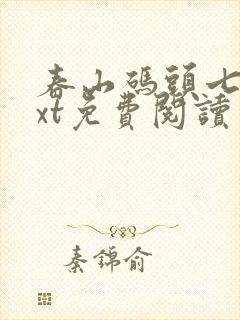 春山碼頭七
xt免費閱讀
秦錦俞